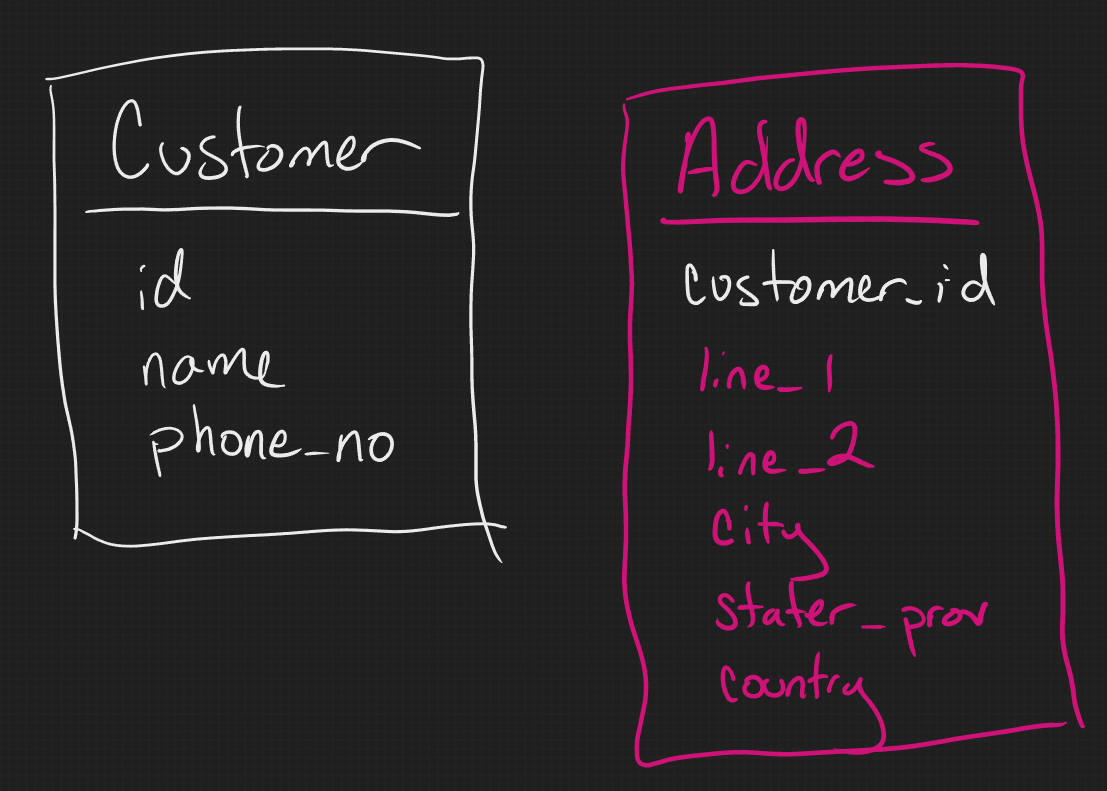 Customer
id
name
phone_no
Address
customer_id
line_1
line_2
City
stater_prov
country